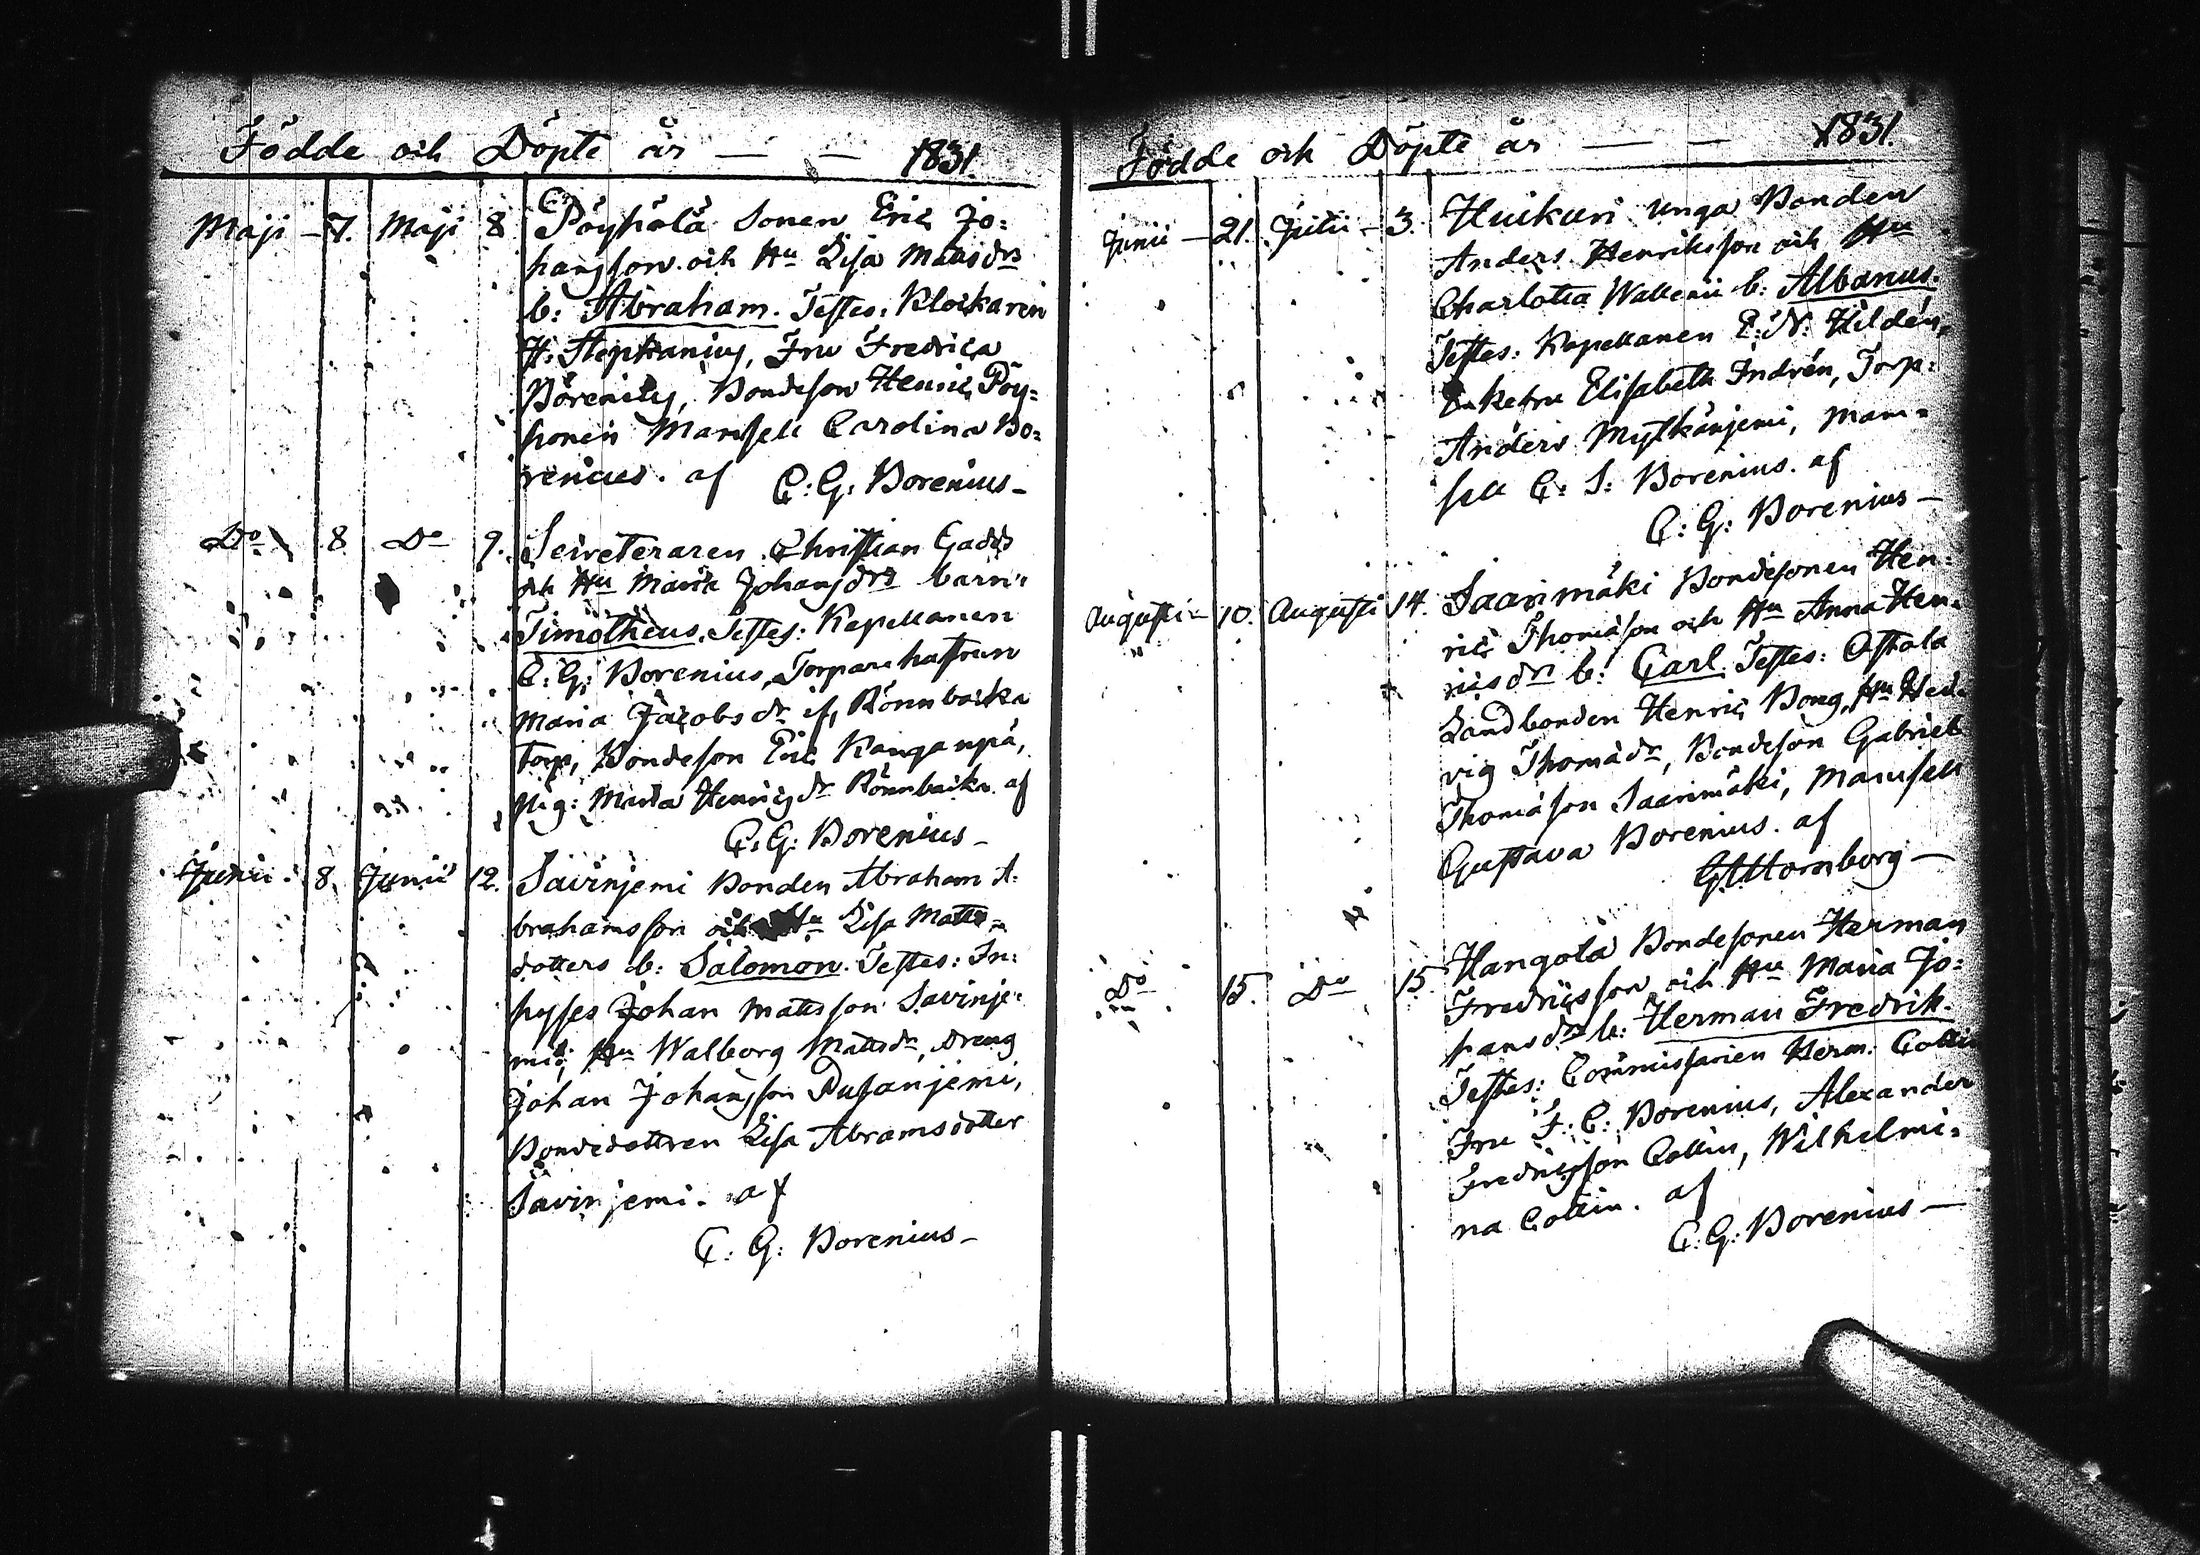 Födde och Döpte år — — 1831.
Maji – 7. Maji 8 Pöyhölä Sonen Eric Jo:
hansson och Hu Lisa Mattsdr
b: Abraham. Testes: Klockaren
H. Stephanius, Fru Fredrica
Borenius, Bondeson Henric Pöy=
honen Mamsell Carolina Bo=
renius. af C: G: Borenius –
Do 8 Do 9. Secreteraren Christian Gadd
och Hu Maria Johansdrs barn
Timotheus. Testes: Kapellanen
C: G: Borenius, Torpare hustrun
Maria Jacobsdr if. Rönnbacka
torp, Bondeson Eric Kanganpä,
pig: Maria Henricsdr Rönnbacka. af
C: G: Borenius –
Junii 8 Junii 12. Savinjemi Bonden Abraham A:
brahamsson och Hu Lisa Matts=
dotters b: Salomon. Testes: In:
hyses Johan Mattsson Savinje:
mi, Hu Walborg Mattsdr, Dreng
Johan Johansson Pusanjemi,
Bondedottren Lisa Abramsdotter
Savinjemi. af
C: G: Borenius –
Födde och Döpte år — — 1831.
Junii – 21. Julii – 3. Huikuri unga Bonden
Anders Henriksson och Hu
Charlotta Wallenii b: Albanus.
Testes: Kapellanen E: N: Hildén,
Enkefru Elisabeth Indrén, Torp:
Anders Mytkänjemi, Mam=
sell C: S: Borenius. af
C: G: Borenius –
Augusti – 10. Augusti 14. Saarimäki Bondesonen Hen:
ric Thomasson och Hu Anna Hen:
ricsdrs b: Carl. Testes: Ostola
Landbonden Henric Bong, Hu Hed:
vig Thomadr, Bondeson Gabriel
Thomasson Saarimäki, Mamsell
Gustava Borenius. af
G A Hornborg –
Do 15. Do 15. Hangola Bondesonen Herman
Fredricsson och Hu Maria Jo:
hansdrs b: Herman Fredrik.
Testes: Commissarien Herm: Collin
Fru F: C: Borenius, Alexander
Fredricsson Collin, Wilhelmi=
na Collin. af
C: G: Borenius –